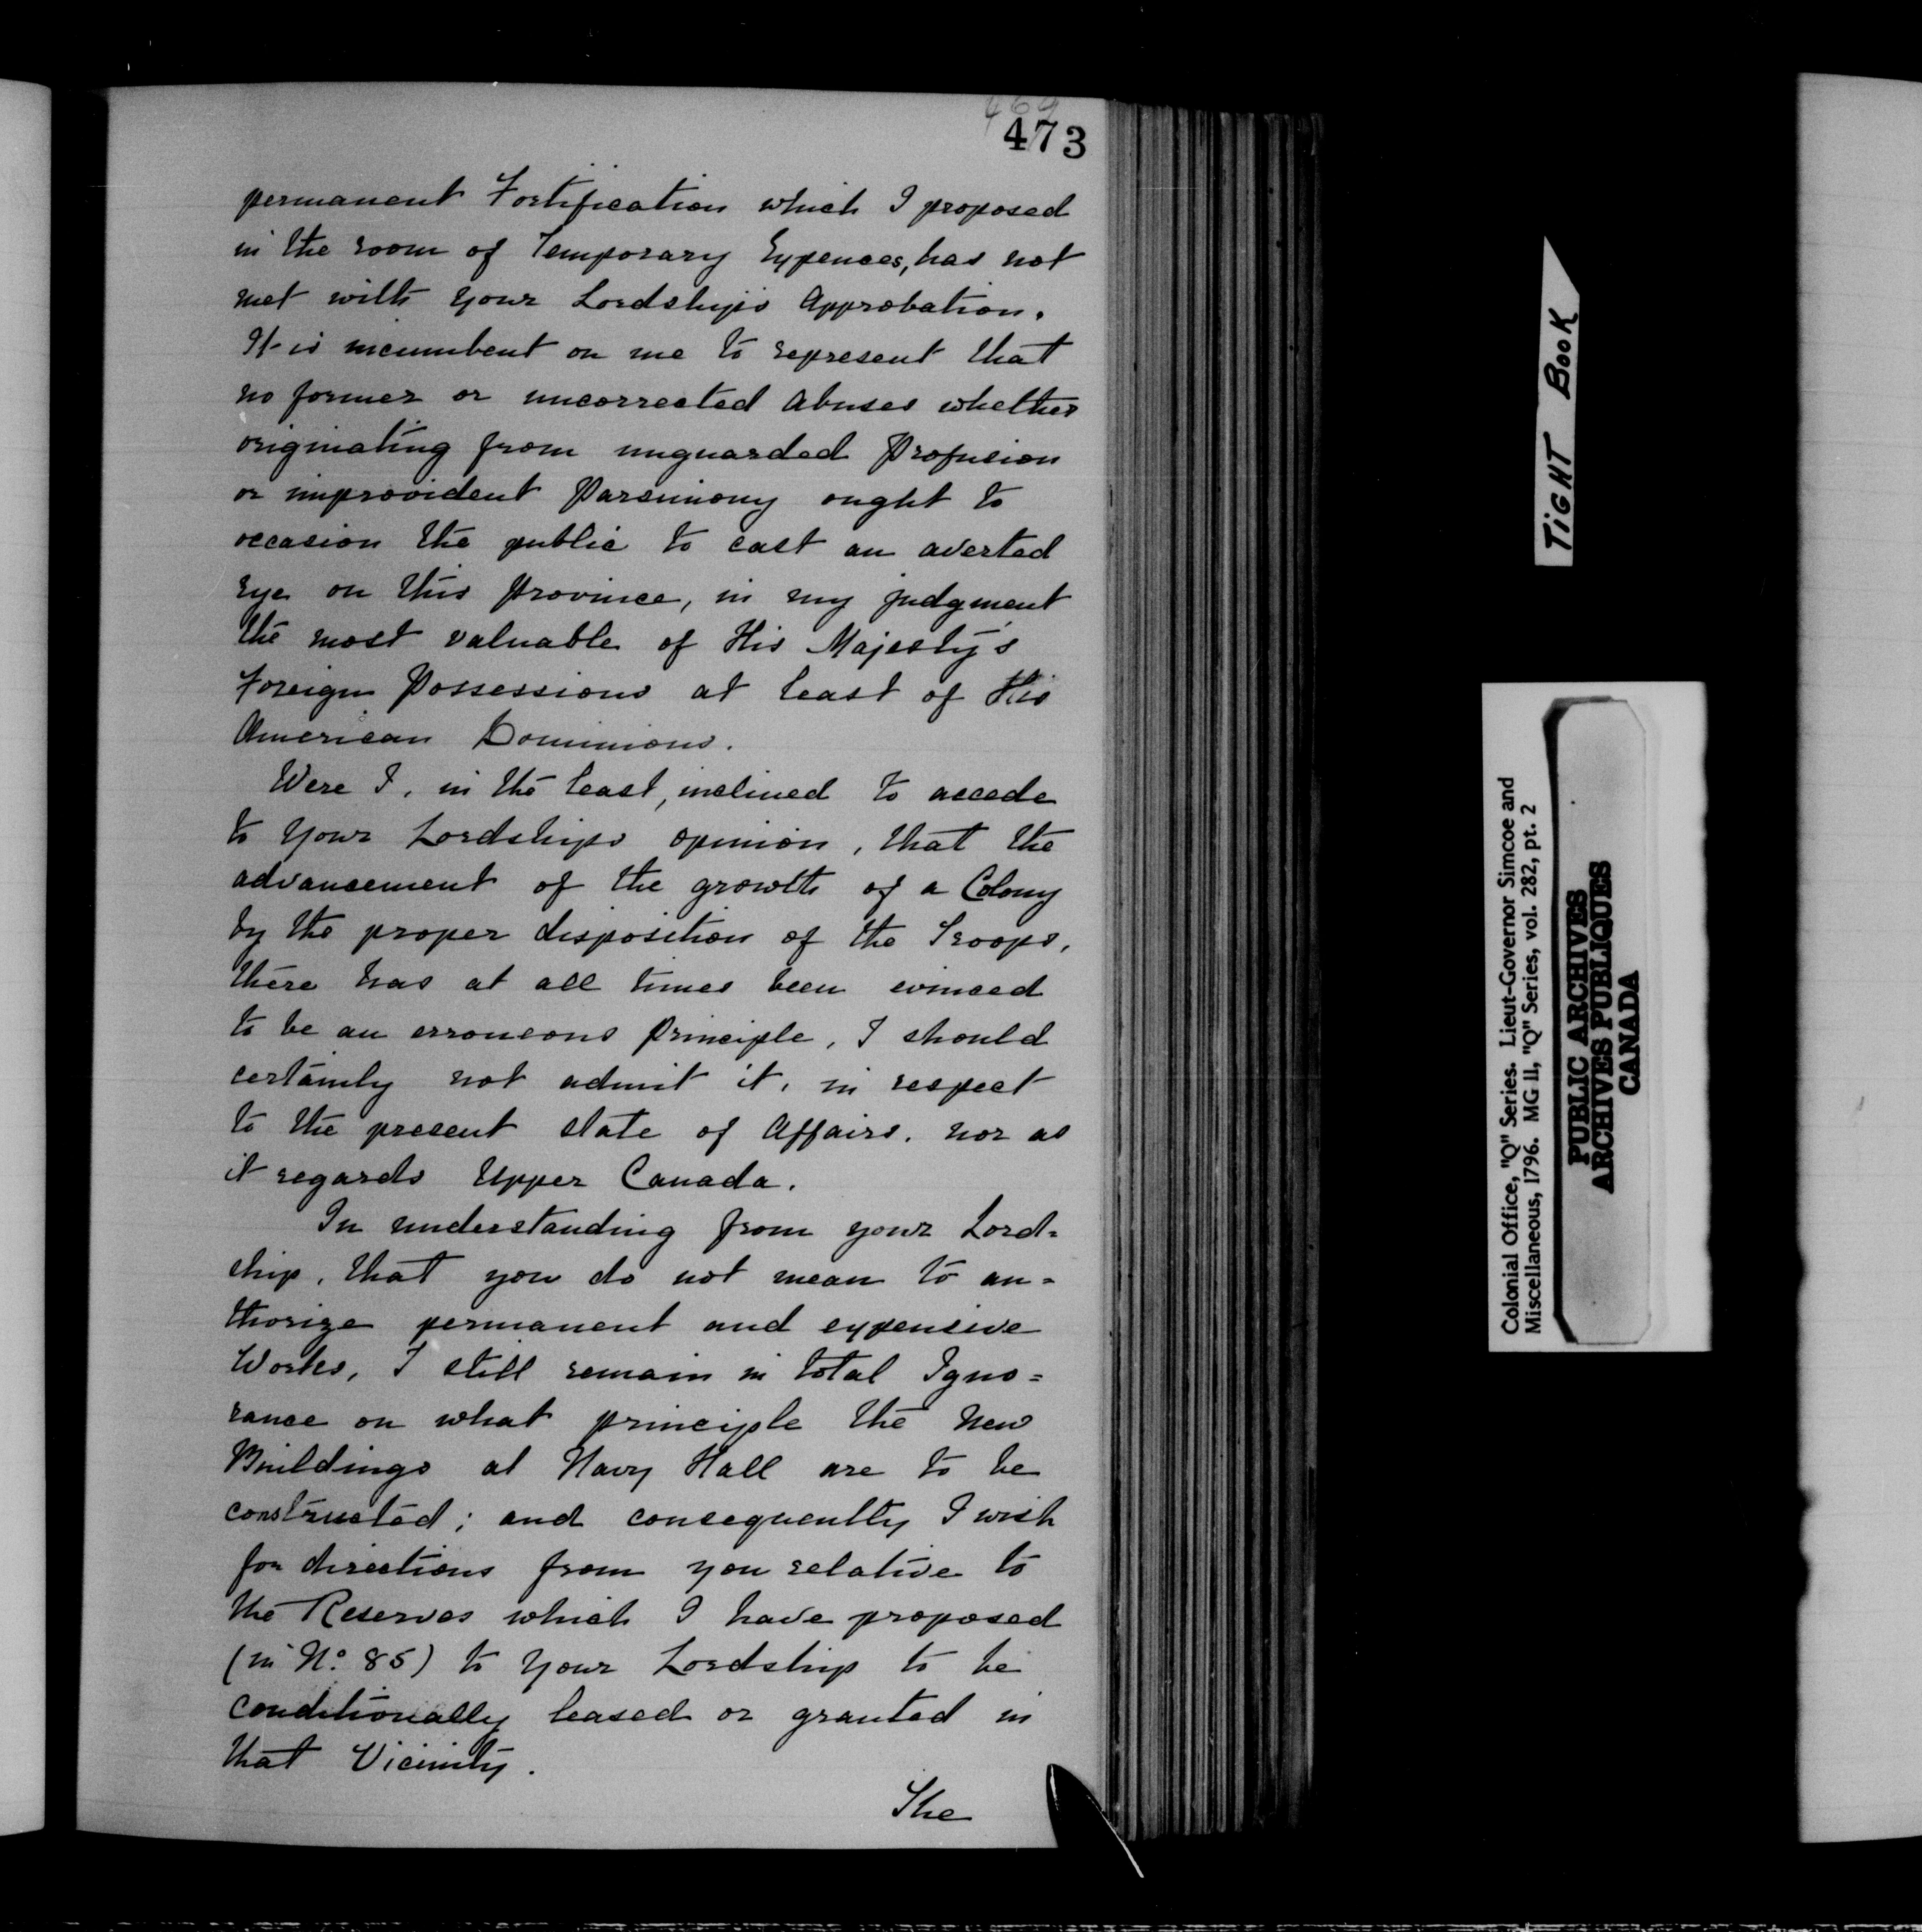 469
473
permanent Fortification which I proposed
in the room of Temporary Expences, has not
met with your Lordship's Approbation.
It is incumbent on me to represent that
no former or uncorrected Abuses whether
originating from unguarded Profusion
or improvident Parsimony ought to
occasion the public to cast an averted
Eye on this Province, in my judgment
the most valuable of His Majesty's
Foreign Possessions at least of His
American Dominions.
Were I, in the least, inclined to accede
to Your Lordships opinion, that the
advancement of the growth of a Colony
by the proper disposition of the Troops,
there has at all times been evinced
to be an erroneous Principle, I should
certainly not admit it, in respect
to the present state of Affairs, nor as
it regards Upper Canada.
In understanding from your Lord=
ship, that you do not mean to au=
thorize permanent and expensive
Works, I still remain in total Igno=
rance on what principle the New
Buildings at Navy Hall are to be
constructed; and consequently I wish
for directions from you relative to
the Reserves which I have proposed
(in No. 85) to Your Lordship to be
conditionally leased or granted in
that Vicinity.
The
TIGHT BOOK
Colonial Office, "Q" Series. Lieut-Governor Simcoe and
Miscellaneous, 1796. MG 11, "Q" Series, vol. 282, pt. 2
PUBLIC ARCHIVES
ARCHIVES PUBLIQUES
CANADA